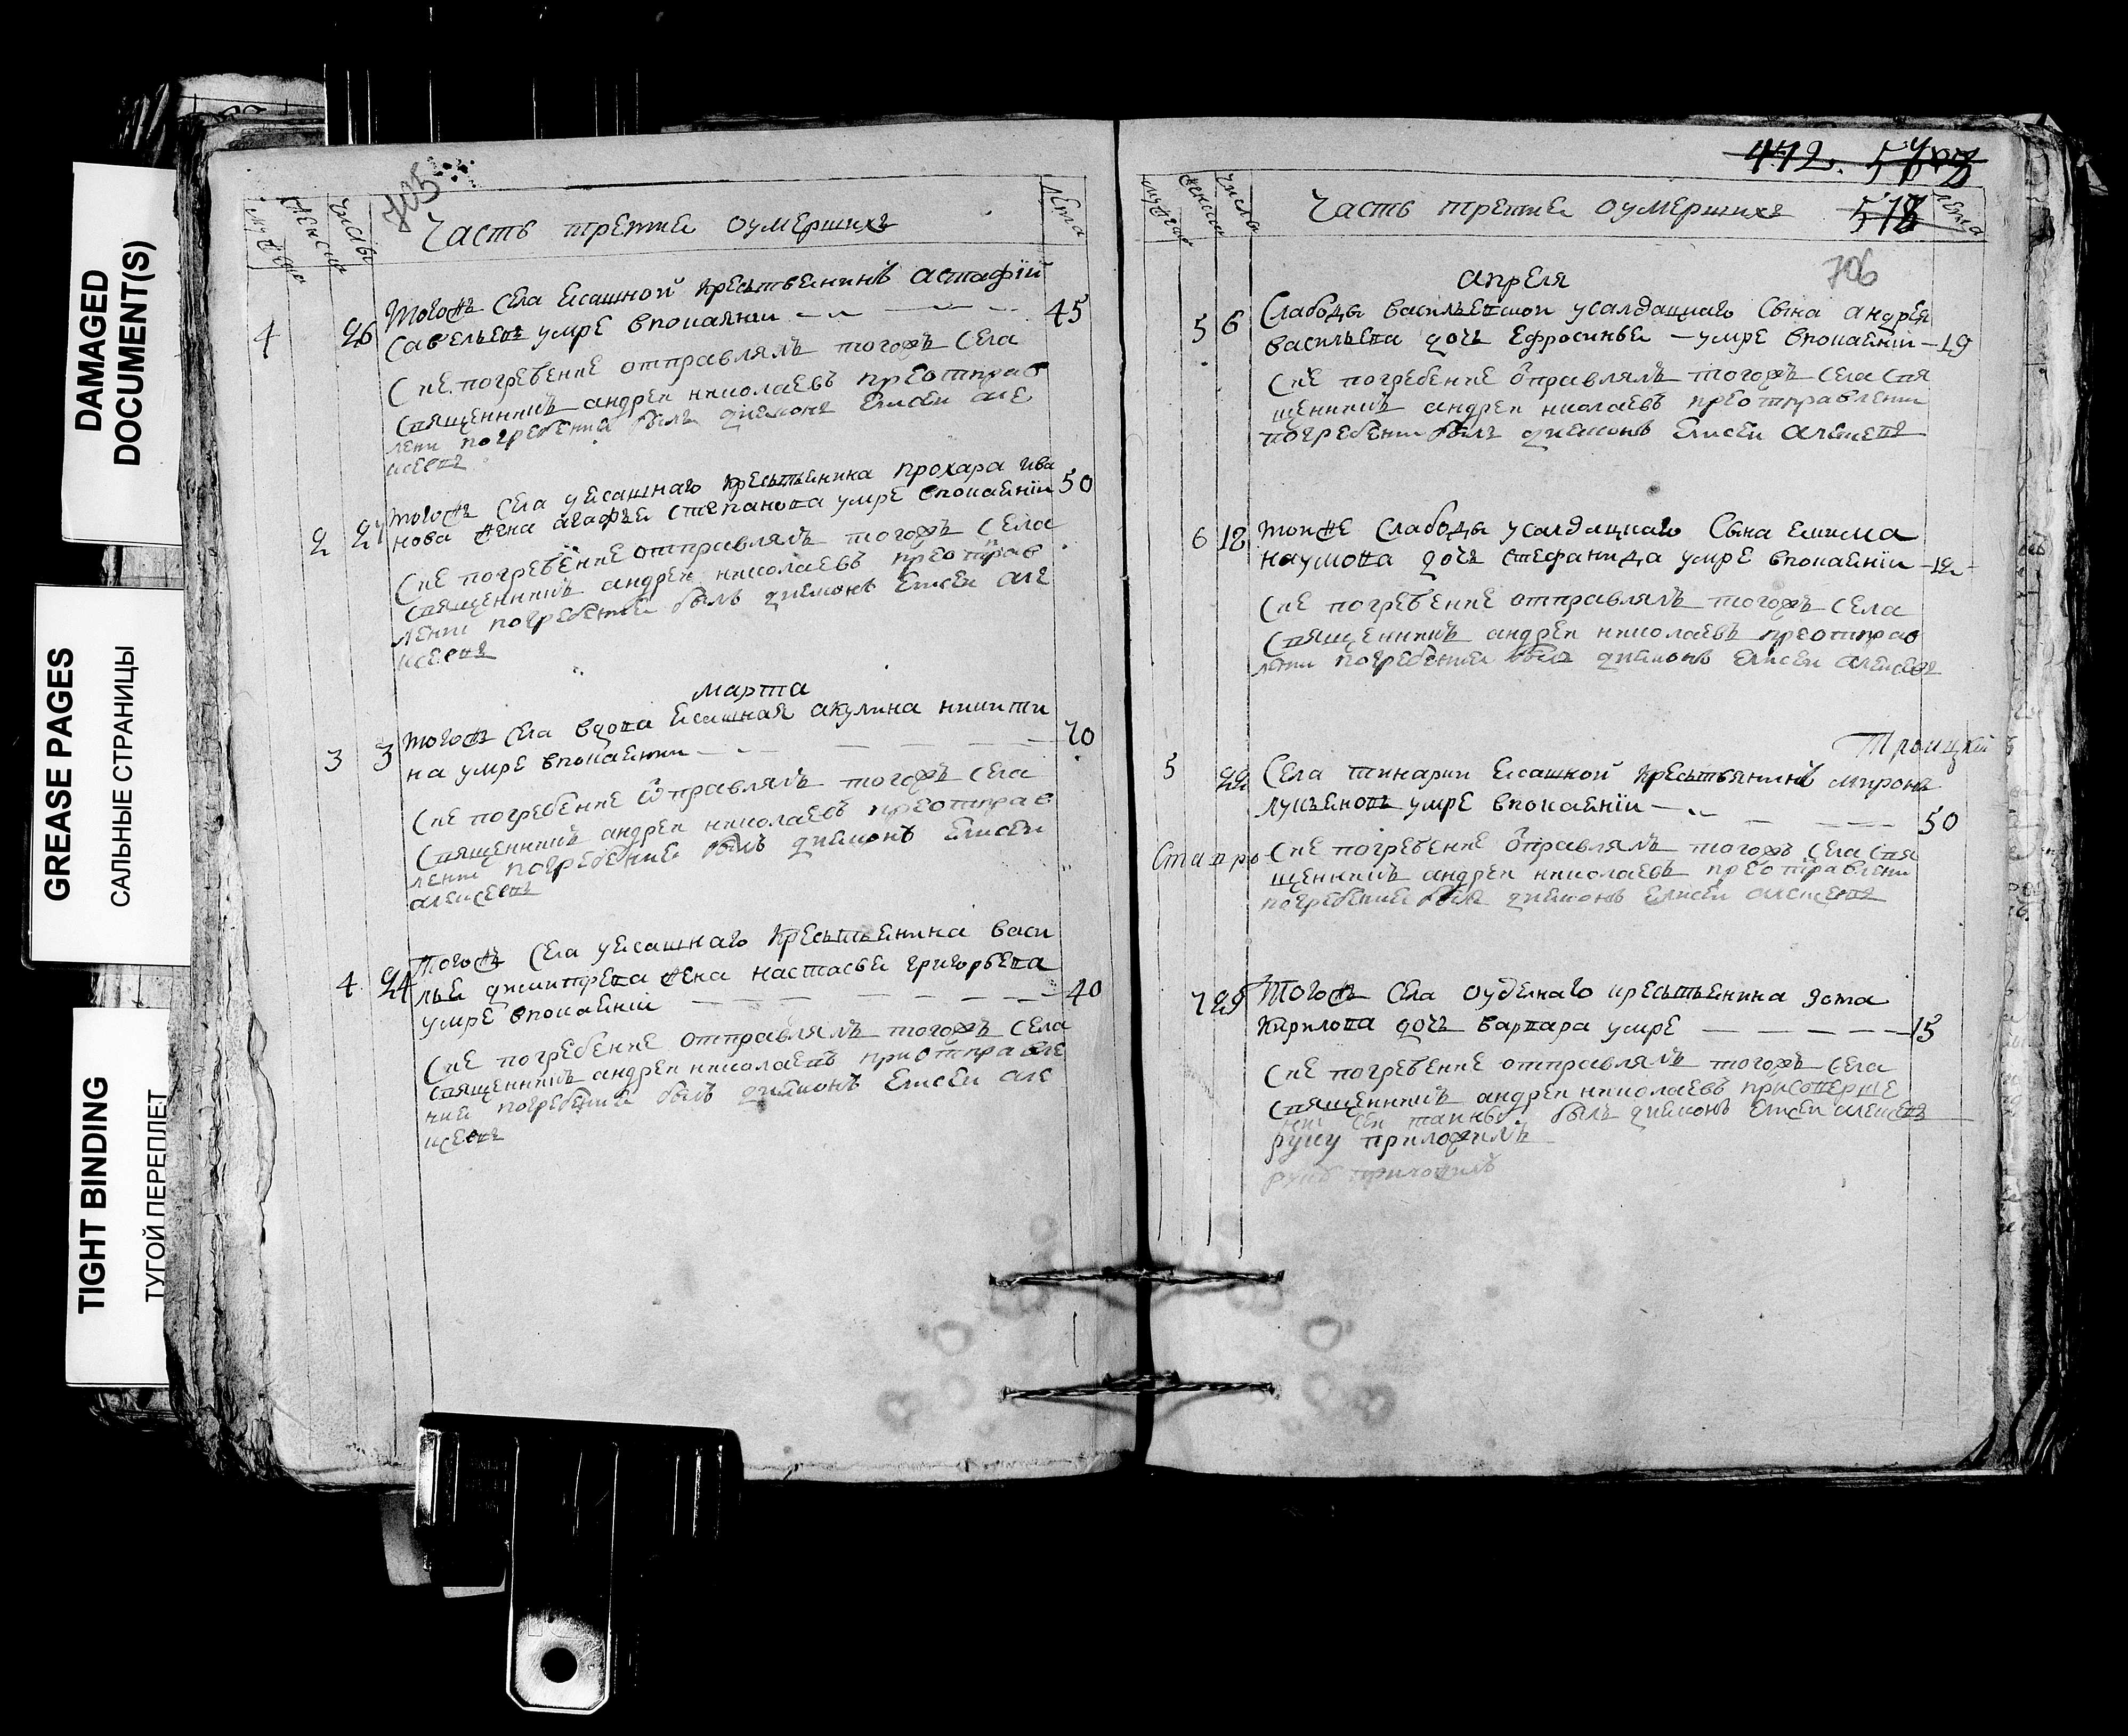 DAMAGED
DOCUMENT(S)
GREASE PAGES
САЛЬНЫЕ СТРАНИЦЫ
TIGHT BINDING
ТУГОЙ ПЕРЕПЛЕТ
705
мужеска женска число Часть третие оумершихъ лета
Тогожъ села ясашной крестьенинъ астафіи
4 26 савельевъ умре впокаянии 45
Сие погребение отправлялъ тогожъ села
священникъ андреи николаевъ преотправ
лени погребении былъ диеконъ Елисеи але
ксеевъ
тогожъ села у ясашнаго крестьенина прохара ива
2 27 нова жена агафьи степанова умре впокаянии 50
Сие погребение отправлялъ тогожъ села
священникъ андреи николаевъ преотправ
лени погребении былъ диеконъ Елисеи але
ксеевъ
марта
3 3 тогожъ села вдова ясашная акулина никити
на умре впокаянии 70
Сие погребение ѿправлялъ тогожъ села
священникъ андреи николаевъ преотправ
лени погребении былъ диеконъ Елисеи
алексеевъ
Тогожъ села у ясашнаго крестьенина васи
4 24 льи дмитрева жена настасьи григорьева
умре впокаянии 40
Сие погребение отправлялъ тогожъ села
священникъ андреи николаевъ приотправле
нии погребении былъ диеконъ Елисеи але
ксеевъ
472.
мужеска женска числа Часть третие оумершихъ 518 лета
706
апреля
5 6 Слабоды васильевской усалдацкаго сына андрея
васильева дочь Ефросиньи умре впокаянии 19
Сие погребение ѿправлялъ тогожъ села свя
щенникъ андреи николаевъ преотправлени
погребени былъ диеконъ Елисеи алексевъ
6 18 тойже слабоды усалдацкаго сына екима
наумова дочь стефанида умре впокаянии 12
Сие погребение отправлялъ тогожъ села
священникъ андреи николаевъ преотправ
лени погребении былъ диеконъ Елисеи алексевъ
Троицкй
5 22 Села тинарки ясашной крестьянинъ миронъ
лукьяновъ умре впокаянии 50
Сие погребение ѿправлялъ тогожъ села свя
щенникъ андреи николаевъ преотправлени
погребении былъ диеконъ Елисеи алексеевъ
7 29 Тогожъ села оуделнаго крестьенина
кирилова дочь варвара умре 15
Сие погребение отправлялъ тогожъ села
священникъ андреи николаевъ присоверше
нии сеи таины былъ диеконъ Елисеи алексевъ
руку приложилъ
руку приложилъ